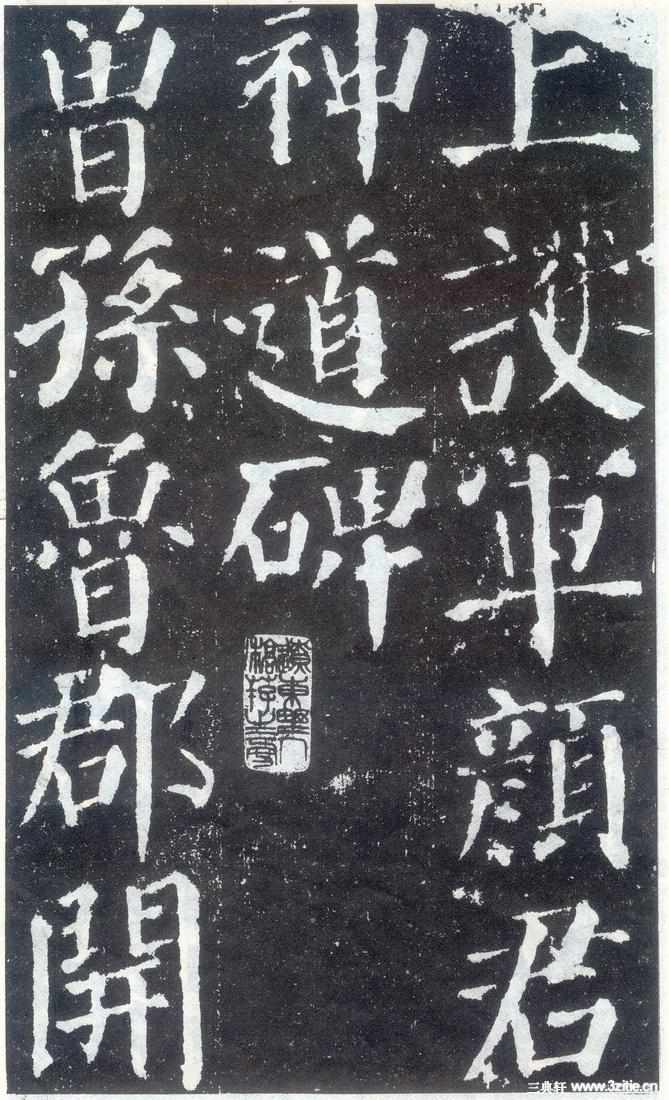 上護軍顏君
神道碑
曾孫魯郡開
三典轩 www.3zitie.cn